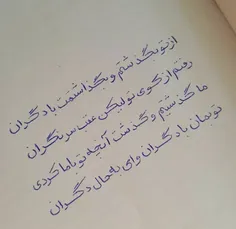 از تو بگذشتم و بگذاشتمت با دگران
رفتم از کوی تو لیکن عقب سر نگران
ما گذشتیم و گذشت آنچه تو با ما کردی
تو بمان با دگران وای به حال دگران